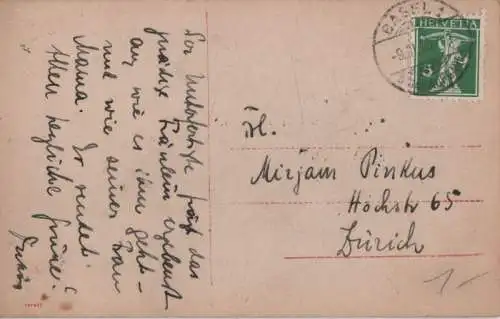 Der Unterfertigte fragt das
gnädige Fräulein ergebenst
an, wie es ihm geht
und wie seiner Frau
Mama. Er sendet
Allen herzliche Grüsse!
BASEL 1
HELVETIA
5
Frl.
Mirjam Pinkus
Höchstr 65
Zürich
1-